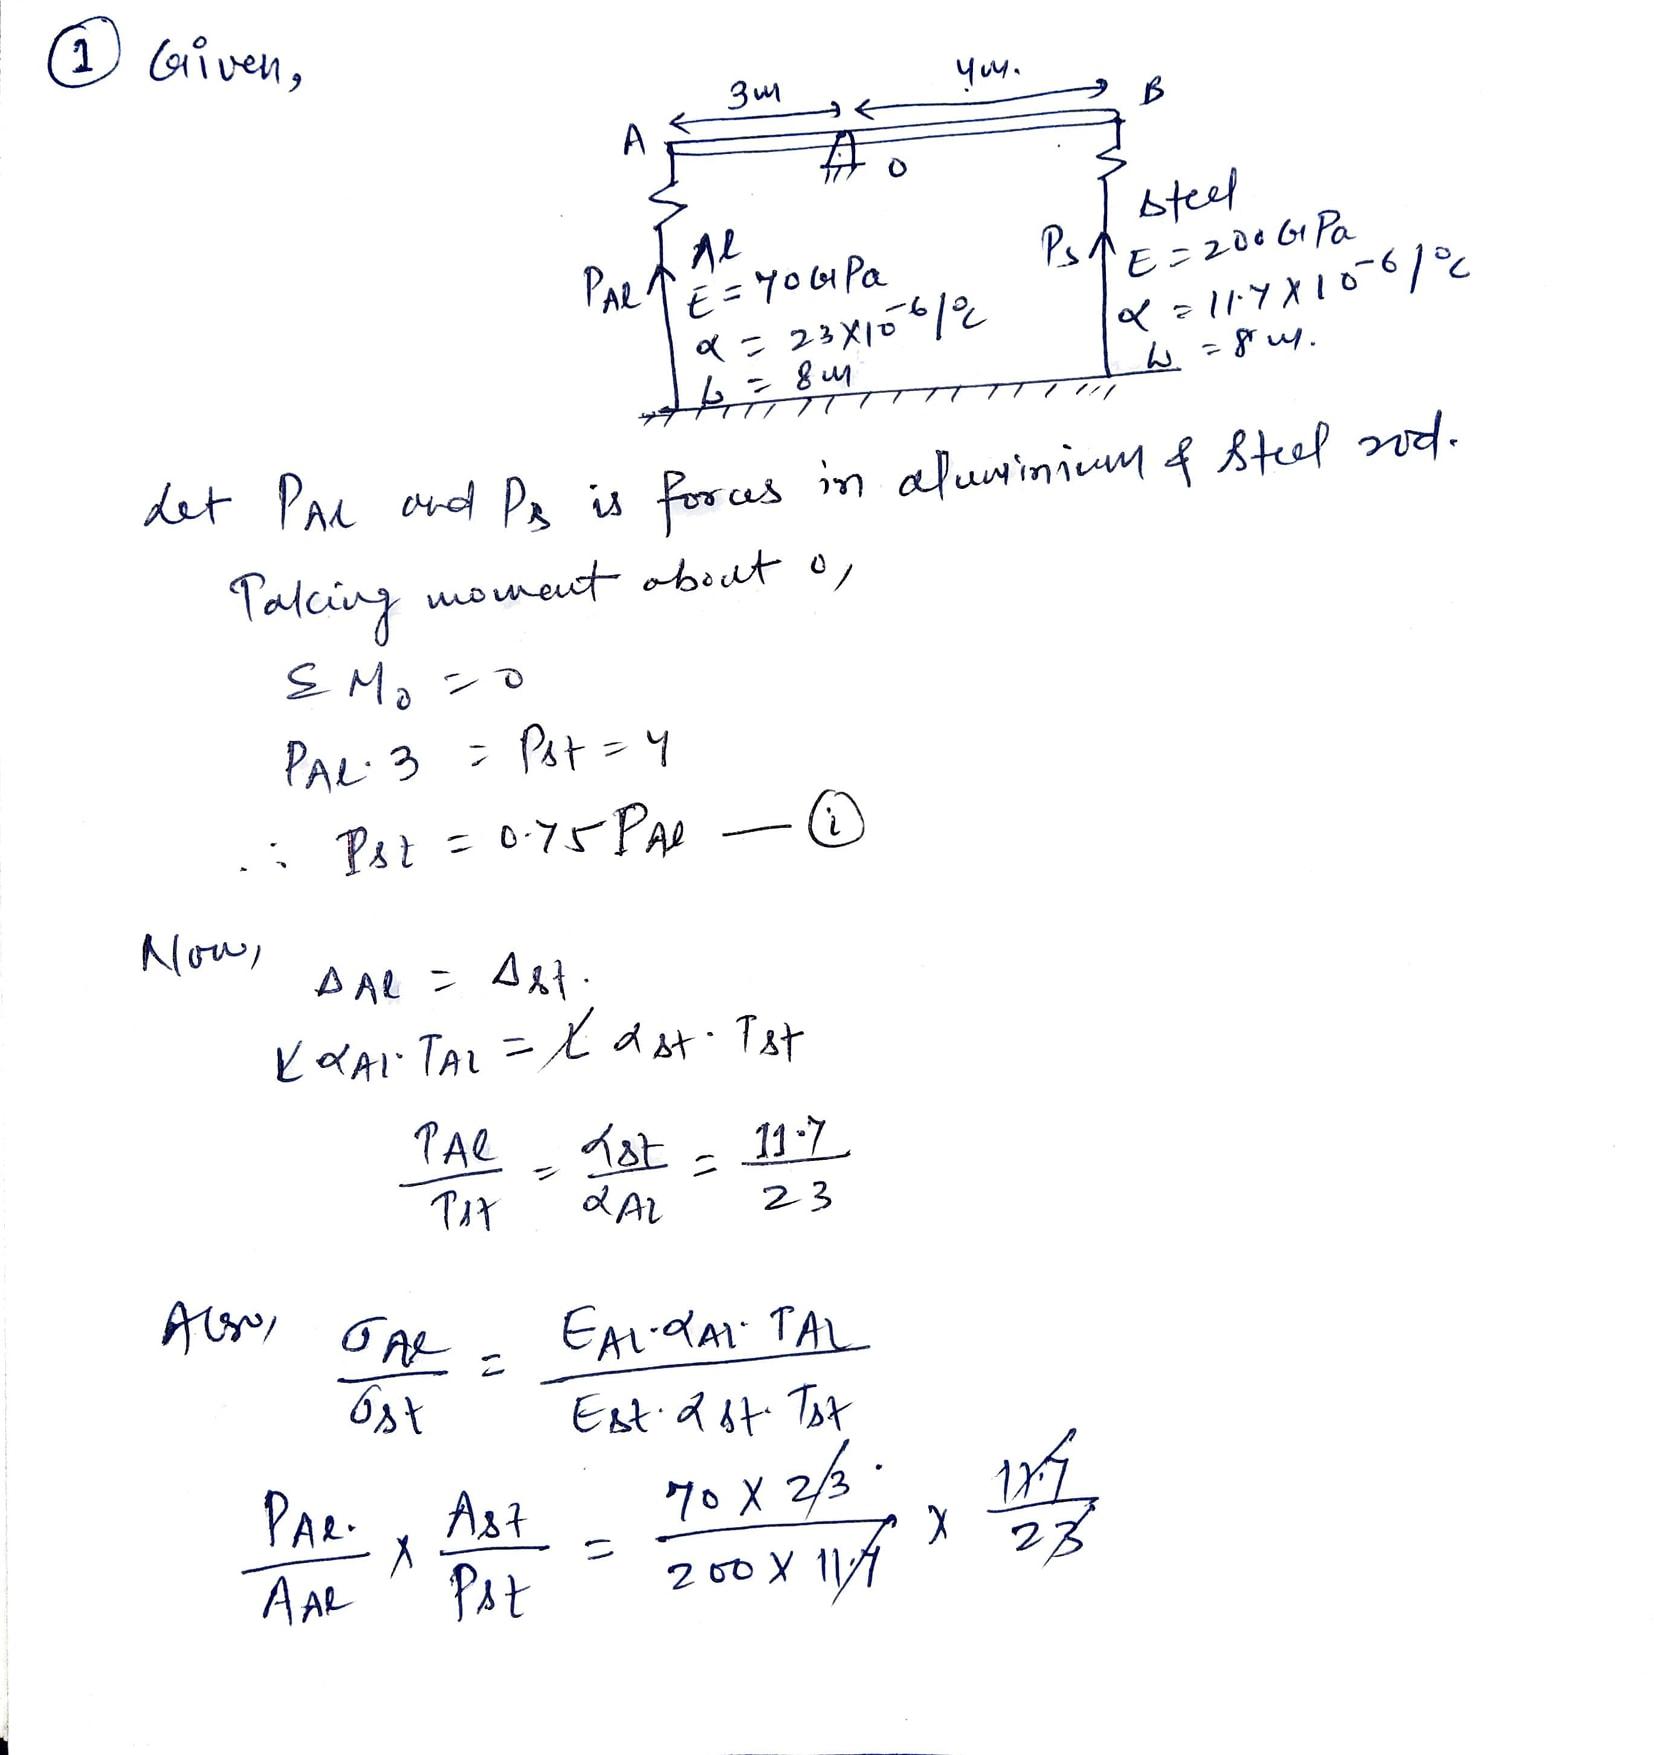 ① Given,
3m 4m.
A B
O
Al
E = 70 GPa
α = 23×10⁻⁶/°C
L = 8m
PAl
Steel
Ps E = 200 GPa
α = 11.7×10⁻⁶/°C
L = 8m.
Let PAl and Ps is forces in aluminium & Steel rod.
Taking moment about o,
Σ Mo = 0
PAl. 3 = Pst = 4
∴ Pst = 0.75 PAl — ⓘ
Now, ΔAl = Δst.
L αAl. TAl = L αst. Tst
TAl / Tst = αst / αAl = 11.7 / 23
Also, σAl / σst = EAl. αAl. TAl / Est. αst. Tst
PAl. / AAl × Ast / Pst = 70 × 23 / 200 × 11.7 × 11.7 / 23